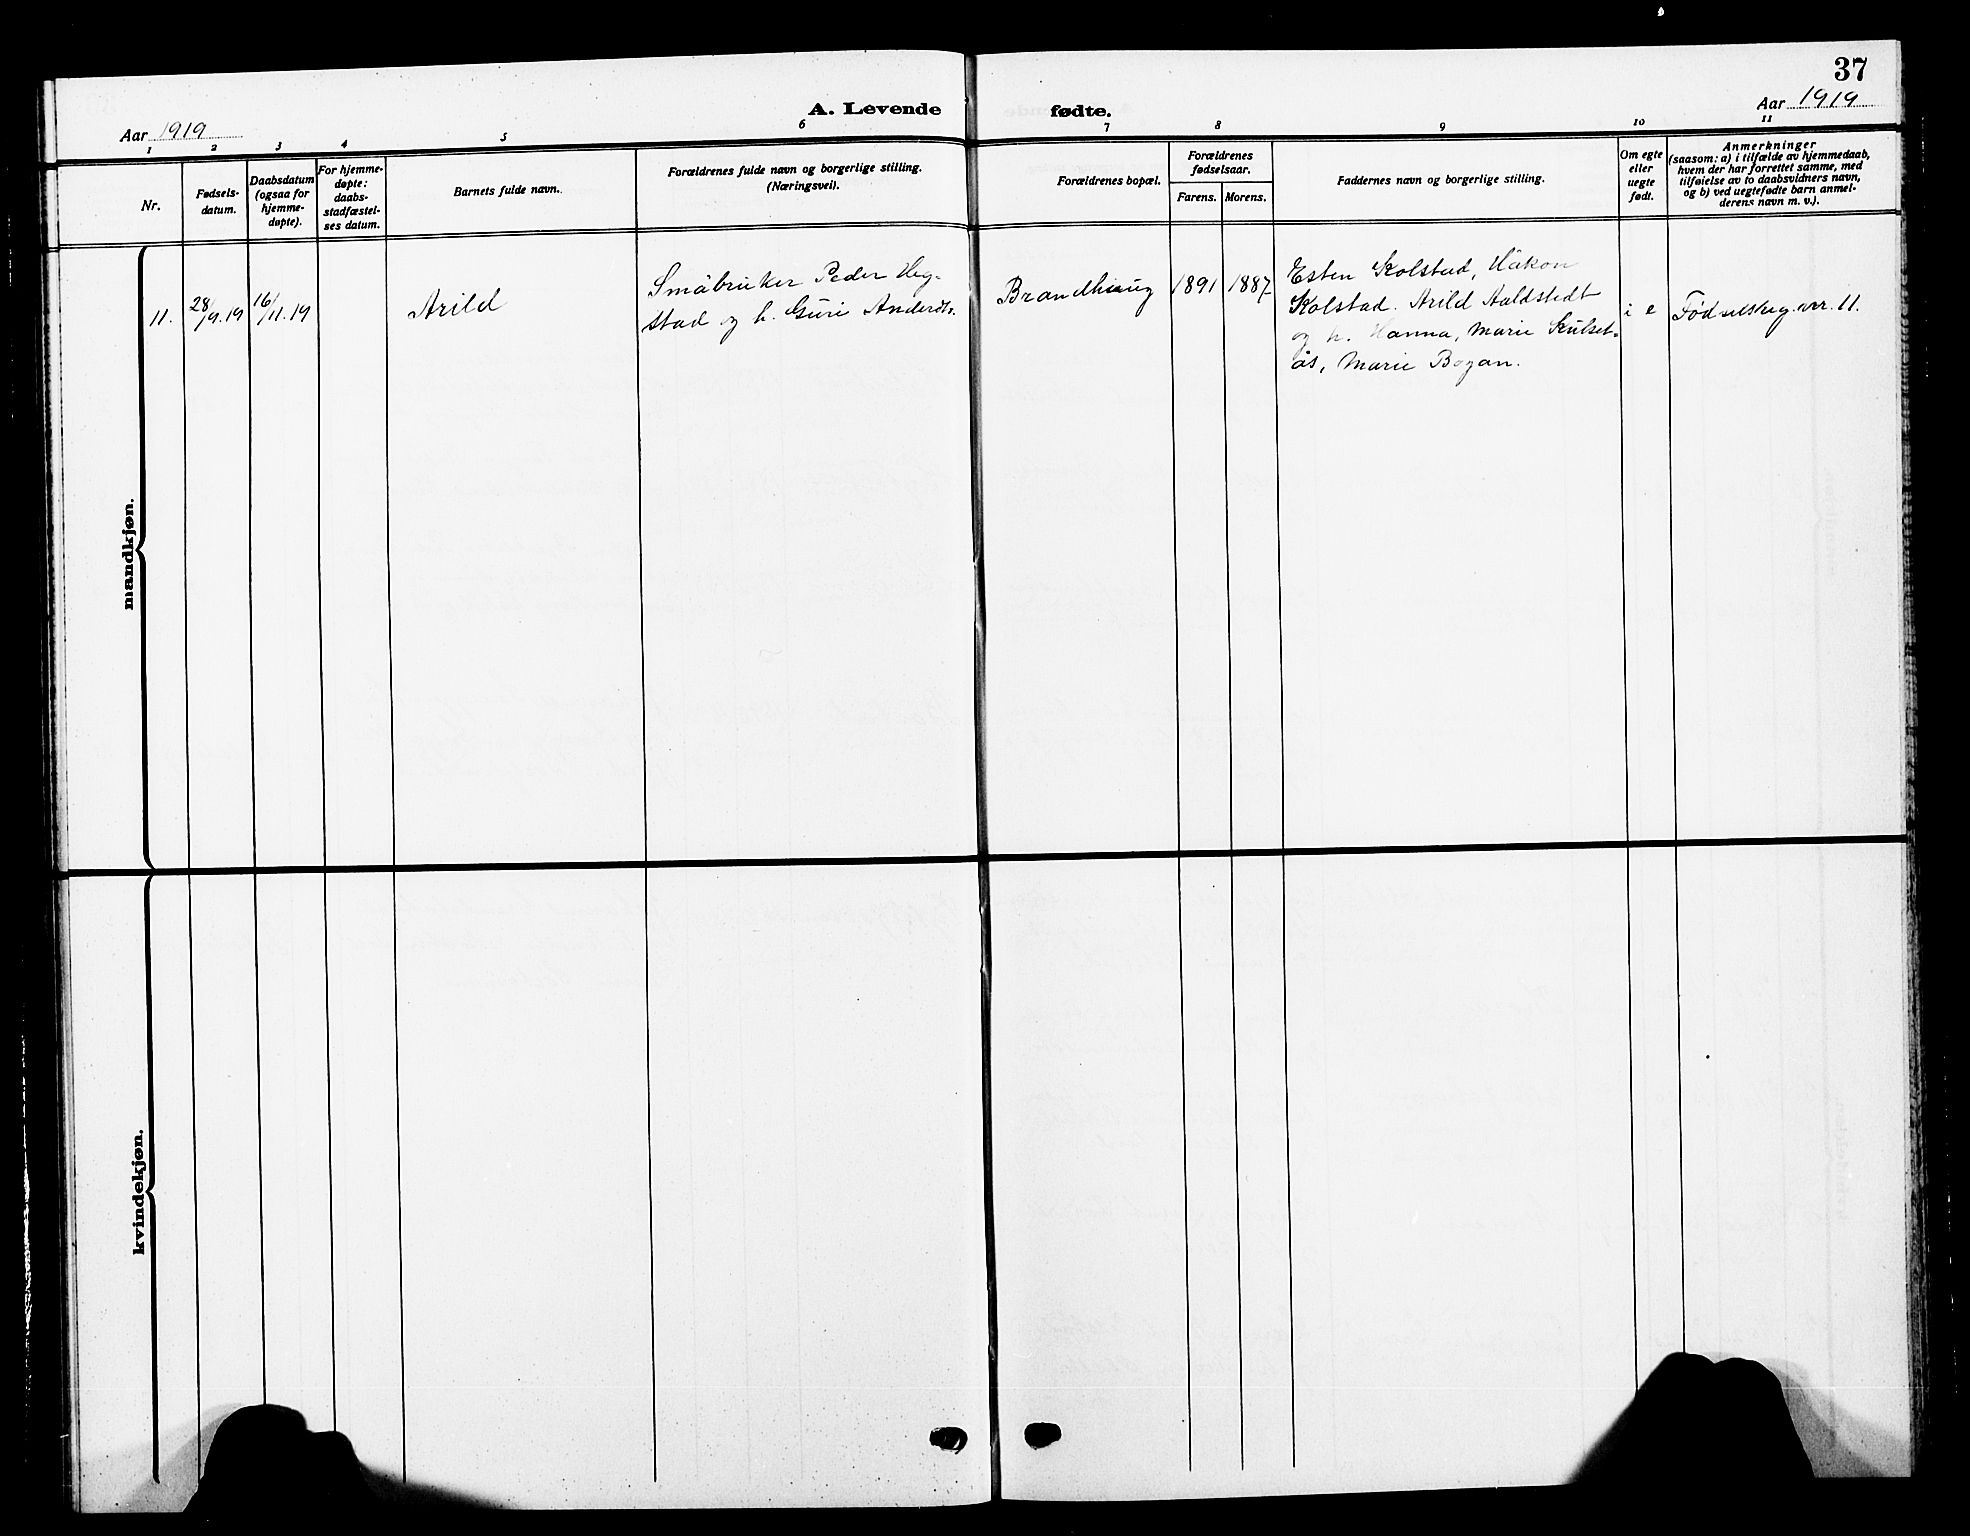 37
A. Levende fødte.
Aar 1919
Aar 1919
1 2 3 4 5 6 7 8 9 10 11
Nr.
Fødsels-
datum.
Daabsdatum
(ogsaa for
hjemme-
døpte).
For hjemme-
døpte:
daabs-
stadfæstel-
ses datum.
Barnets fulde navn.
Forældrenes fulde navn og borgerlige stilling.
(Næringsvei).
Forældrenes bopæl.
Forældrenes
fødselsaar.
Farens. Morens.
Faddernes navn og borgerlige stilling.
Om egte
eller
uegte
født.
Anmerkninger
(saasom: a) i tilfælde av hjemmedaab,
hvem der har forrettet samme, med
tilføielse av to daabsvidners navn,
og b) ved uegtefødte barn anmel-
derens navn m. v.).
mandkjøn.
11.
28/9.19
16/11.19
Arild
Småbruker Peder Heg-
stad og h. Guri Andersdtr.
Brandhaug
1891
1887
Esten Kolstad, Håkon
Kolstad. Arild Aaldstedt
og h. Hanna, Marie Kulset-
ås, Marie Bogan.
i e
Fødselsreg. nr. 11.
kvindekjøn.